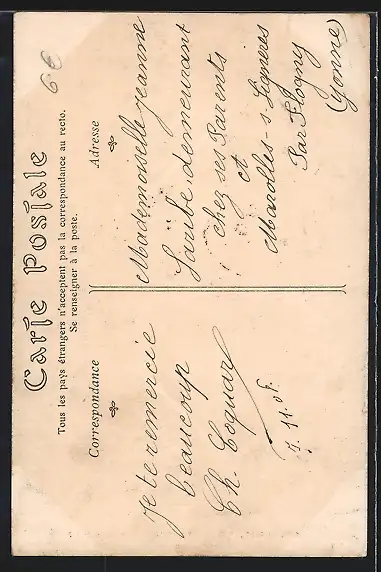 6€
Carte Postale
Tous les pays étrangers n'acceptent pas la correspondance au recto.
Se renseigner à la poste.
Correspondance
Je te remercie
beaucoup
Ch. Coquard
Adresse
Mademoiselle Jeanne
demeurant
chez ses Parents
à
Marolles-s-Lignières
Par Flogny
(Yonne)